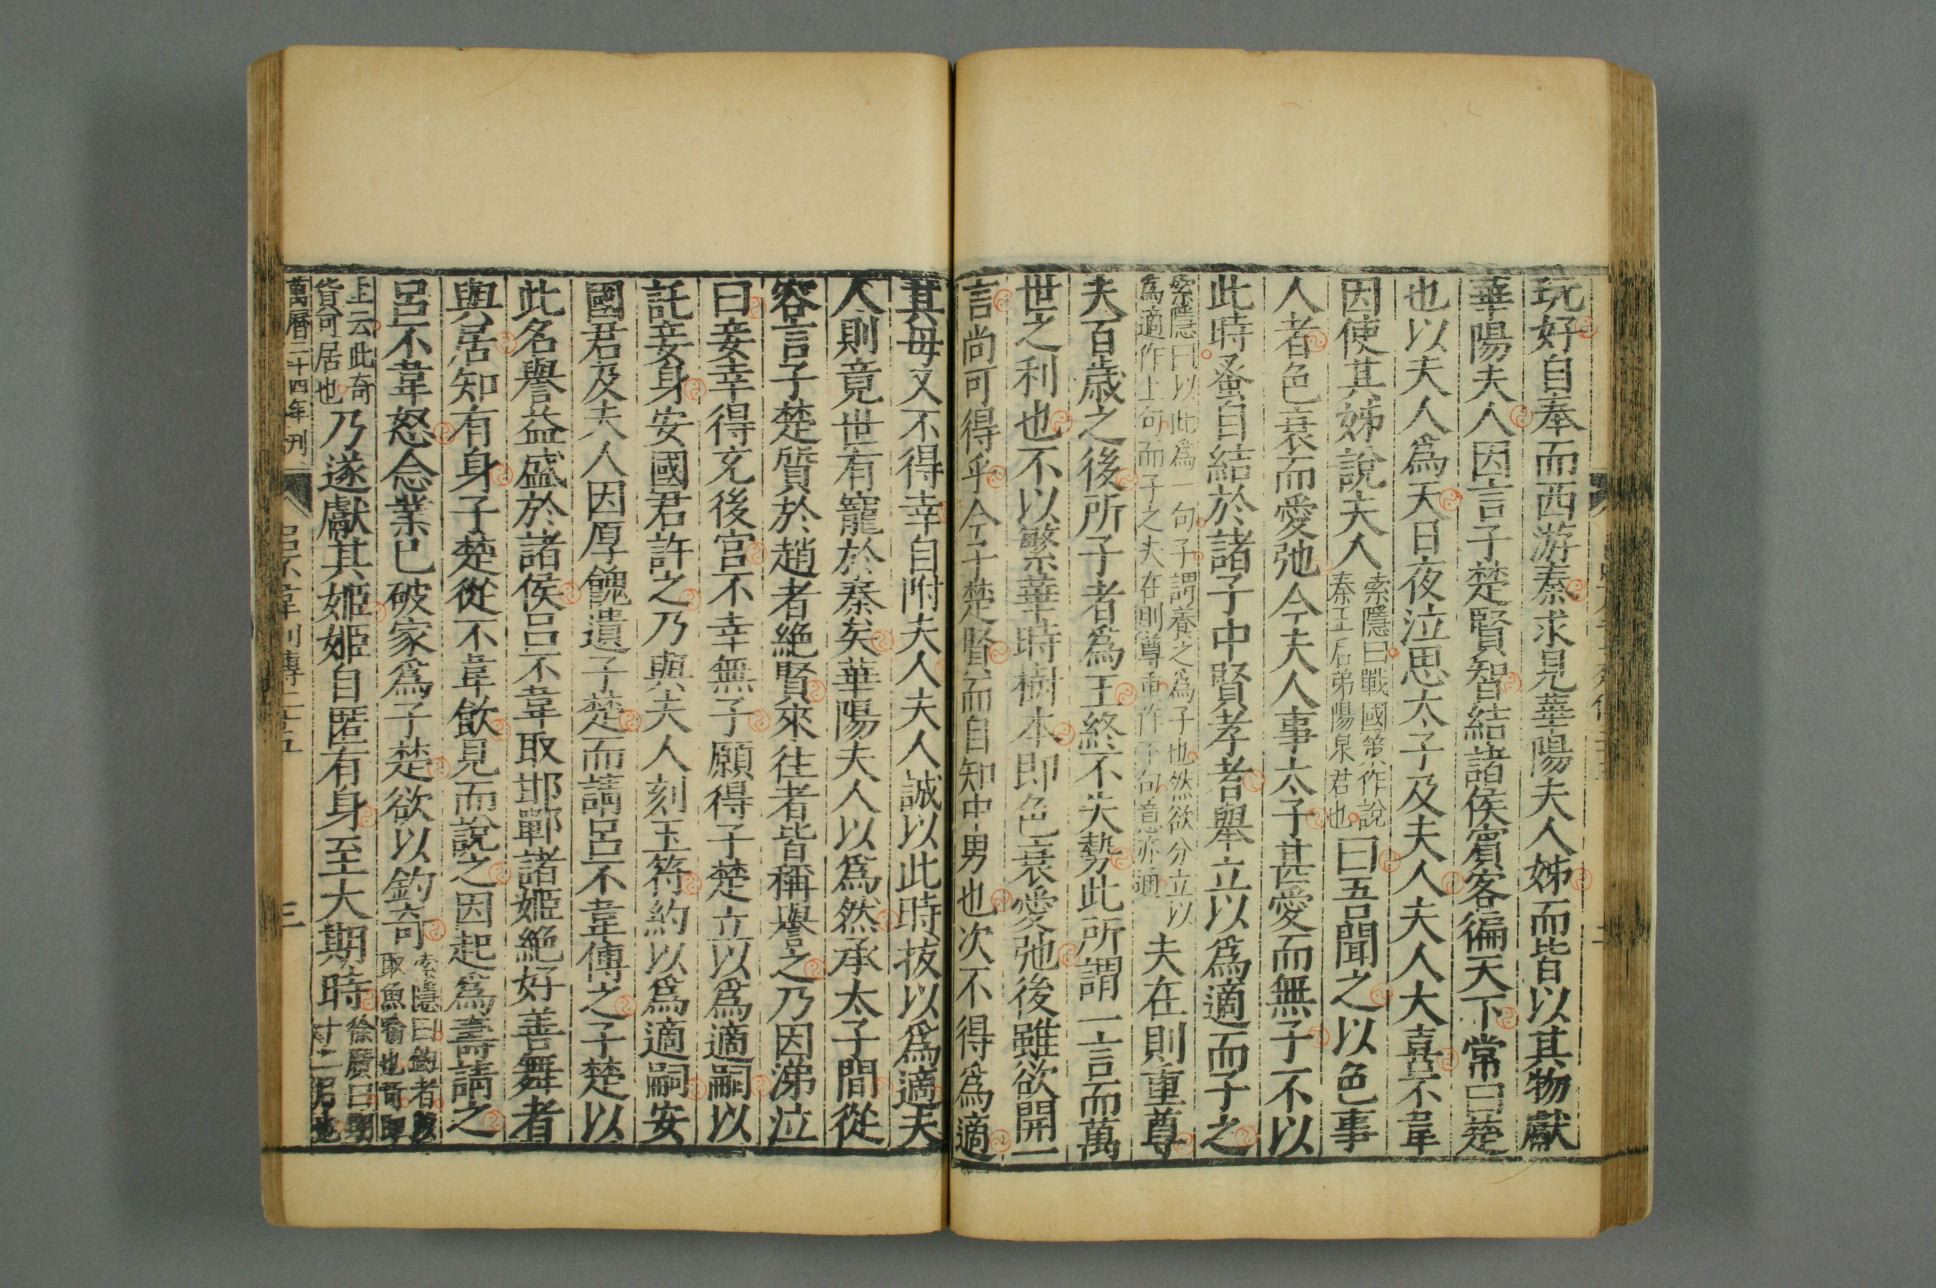 玩好自奉而西游秦求見華陽夫人姊而皆以其物獻
華陽夫人因言子楚賢智結諸侯賓客徧天下常曰楚
也以夫人爲天日夜泣思太子及夫人夫人大喜不韋
因使其姊說夫人
索隱曰戰國策作說
秦王后弟陽泉君也
曰吾聞之以色事
人者色衰而愛弛今夫人事太子甚愛而無子不以
此時蚤自結於諸子中賢孝者舉立以爲適而子之
索隱曰以此爲一句子謂養之爲子也然欲分立以
爲適作上句而子之夫在則尊重作下句意亦通
夫在則重尊
夫百歲之後所子者爲王終不失勢此所謂一言而萬
世之利也不以繁華時樹本即色衰愛弛後雖欲開一
言尚可得乎今子楚賢而自知中男也次不得爲適
其母又不得幸自附夫人夫人誠以此時拔以爲適夫
人則竟世有寵於秦矣華陽夫人以爲然承太子間從
容言子楚質於趙者絶賢來往者皆稱譽之乃因涕泣
曰妾幸得充後宮不幸無子願得子楚立以爲適嗣以
託妾身安國君許之乃與夫人刻玉符約以爲適嗣安
國君及夫人因厚餽遺子楚而請呂不韋傅之子楚以
此名譽益盛於諸侯呂不韋取邯鄲諸姬絶好善舞者
與居知有身子楚從不韋飲見而說之因起爲壽請之
呂不韋怒念業已破家爲子楚欲以釣奇
索隱曰釣者以
取魚喻也奇即
上云此奇
貨可居也
乃遂獻其姬姬自匿有身至大期時
徐廣曰期
十二月也
萬曆二十四年刊
呂不韋列傳二十五
三